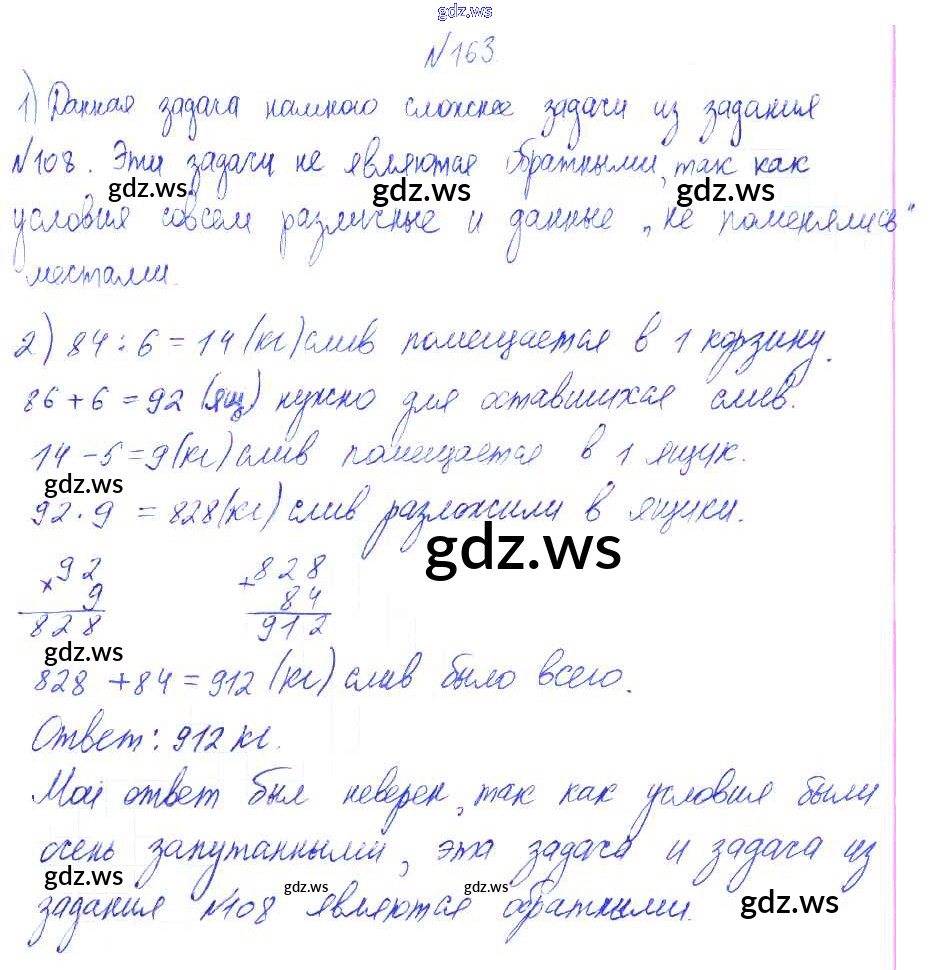 gdz.ws
№163.
1) Данная задача намного сложнее задачи из задания
№108. Эти задачи не являются обратными, так как
gdz.ws gdz.ws gdz.ws
условия совсем различные и данные „не поменялись"
местами.
2) 84 : 6 = 14 (кг) слив помещается в 1 корзину.
86 + 6 = 92 (ящ) нужно для оставшихся слив.
14 - 5 = 9 (кг) слив помещается в 1 ящик.
gdz.ws
92 · 9 = 828 (кг) слив разложили в ящики.
gdz.ws
× 92 + 828
9 84
828 912
gdz.ws
828 + 84 = 912 (кг) слив было всего.
Ответ: 912 кг.
Мой ответ был неверен, так как условия были
очень запутанными, эта задача и задача из
gdz.ws gdz.ws gdz.ws gdz.ws
задания №108 являются обратными.